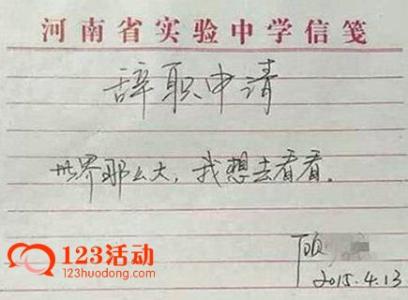 河南省实验中学信笺
辞职申请
世界那么大，我想去看看。
顾
2015.4.13
123活动
123huodong.com